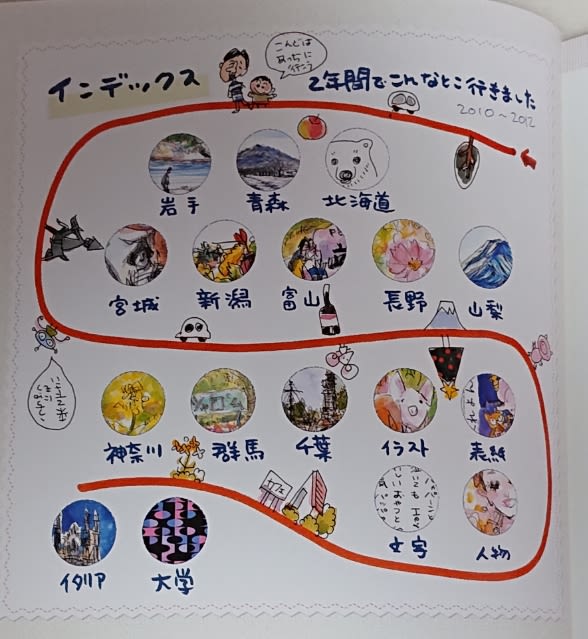 インデックス
こんどは
あっちに
行こう
2年間でこんなとこ行きました
2010～2012
岩手
青森
北海道
宮城
新潟
富山
長野
山梨
神奈川
群馬
千葉
イラスト
表紙
文字
人物
イタリア
大学